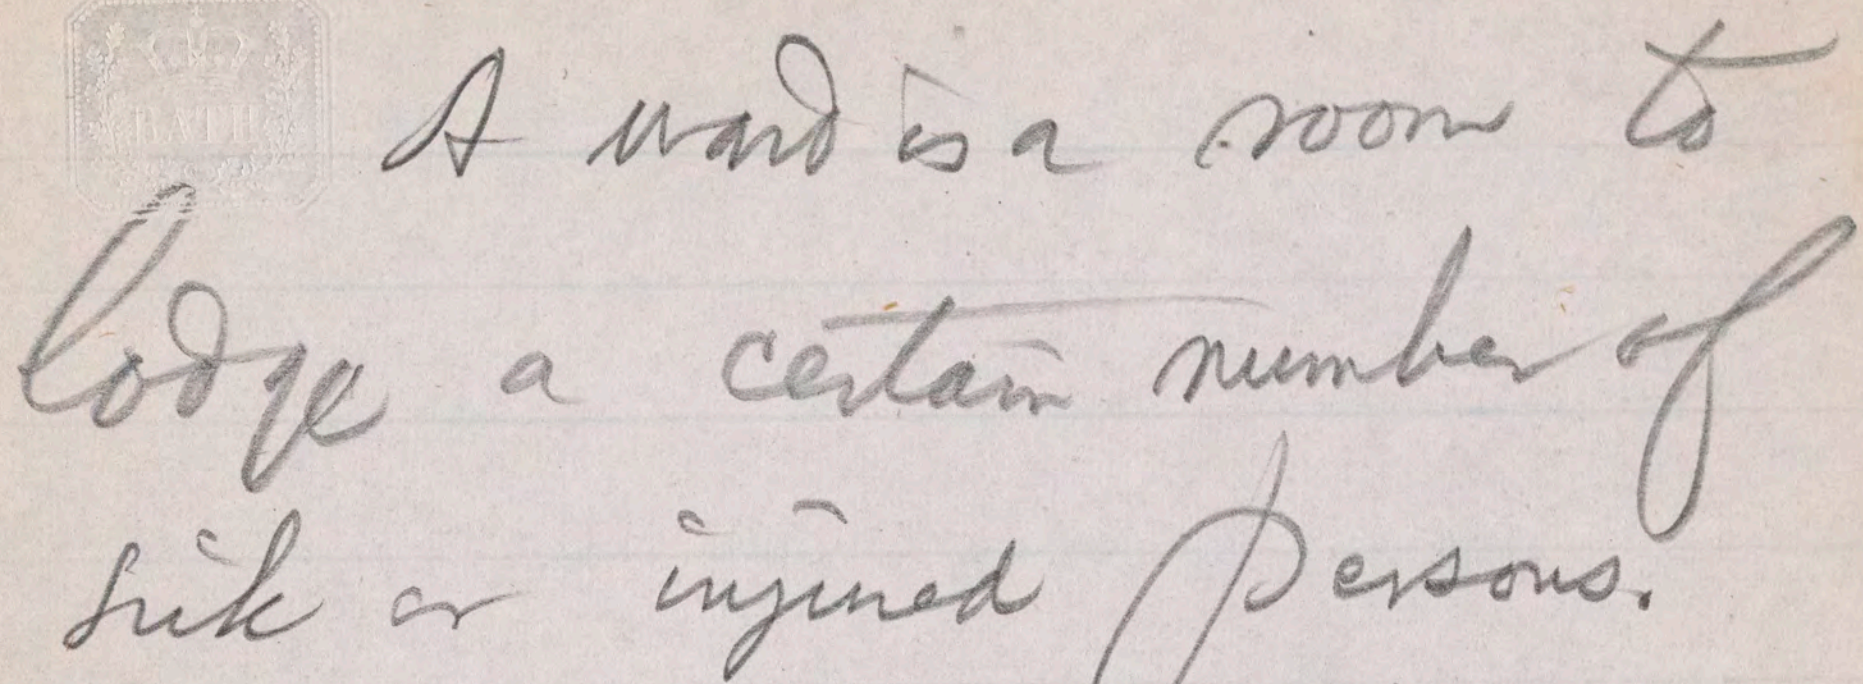 BATH
A ward is a room to
lodge a certain number of
sick or injured persons.